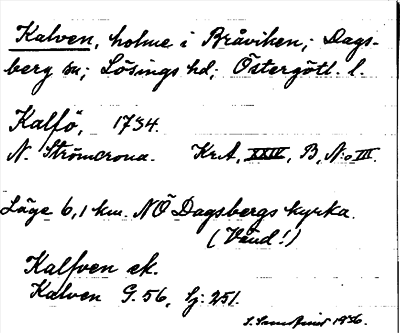 Kalven, holme i Bråviken; Dags-
berg sn; Lösings hd; Östergötl. l.
Kalfö, 1734.
N. Strömcrona. KrA, XXIV, B, N:o III.
Läge 6,1 km. NÖ Dagsbergs kyrka.
(Vänd!)
Kalfven ek.
Kalven G. 56, Lj: 251.
1936